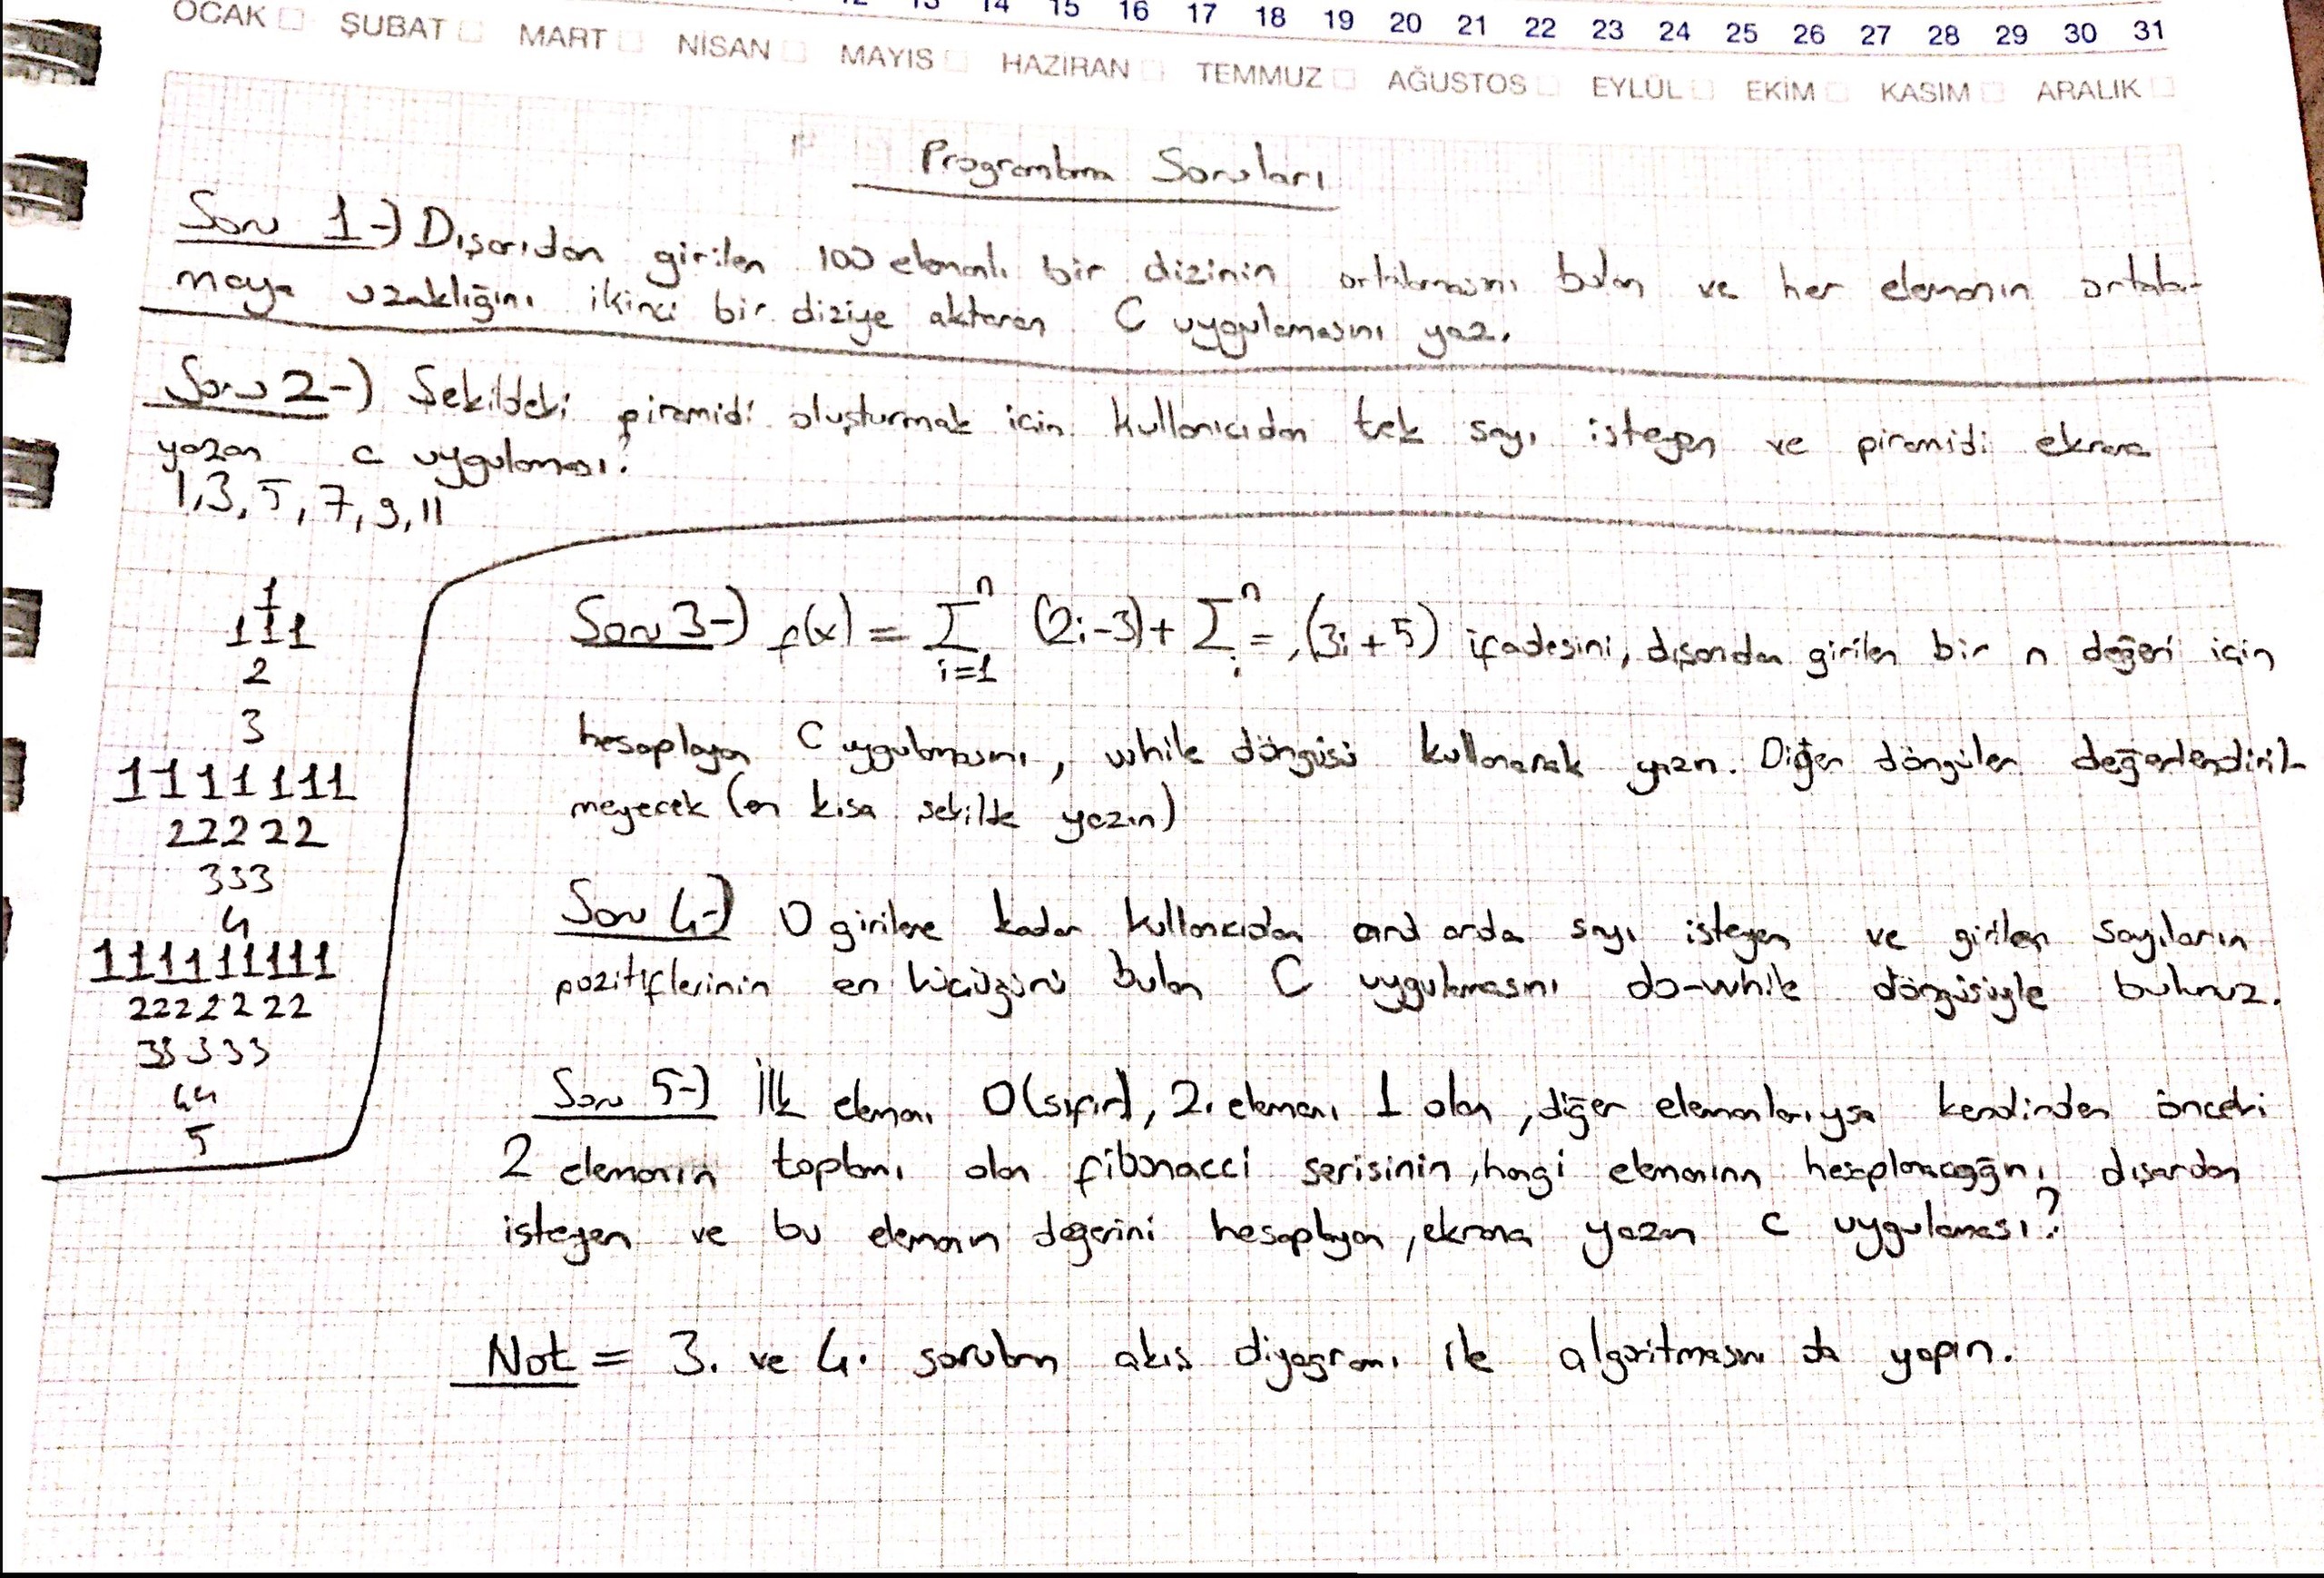 12 13 14 15 16 17 18 19 20 21 22 23 24 25 26 27 28 29 30 31
OCAK ŞUBAT MART NİSAN MAYIS HAZİRAN TEMMUZ AĞUSTOS EYLÜL EKİM KASIM ARALIK
Programlama Soruları
Soru 1-) Dışarıdan girilen 100 elemanlı bir dizinin ortalamasını bulan ve her elemanın ortala-
maya uzaklığını ikinci bir diziye aktaran C uygulamasını yaz.
Soru 2-) Şekildeki piramidi oluşturmak için kullanıcıdan tek sayı isteyen ve piramidi ekrana
yazan C uygulaması?
1,3,5,7,9,11
1
111
2
3
1111111
22222
333
4
111111111
2222222
33333
44
5
Soru 3-) f(x) = Σ^n_{i=1} (2i-3) + Σ^n_i = , (3i+5) ifadesini, dışarıdan girilen bir n değeri için
hesaplayan C uygulamasını, while döngüsü kullanarak yazın. Diğer döngüler değerlendiril-
meyecek (en kısa şekilde yazın)
Soru 4-) 0 girilene kadar kullanıcıdan ard arda sayı isteyen ve girilen sayıların
pozitiflerinin en küçüğünü bulan C uygulamasını do-while döngüsüyle bulunuz.
Soru 5-) İlk elemanı 0(sıfır), 2. elemanı 1 olan, diğer elemanlarıysa kendinden önceki
2 elemanın toplamı olan fibonacci serisinin, hangi elemanının hesaplanacağını dışardan
isteyen ve bu elemanın değerini hesaplayan, ekrana yazan C uygulaması?
Not = 3. ve 4. soruların akış diyagramı ile algoritmasını da yapın.